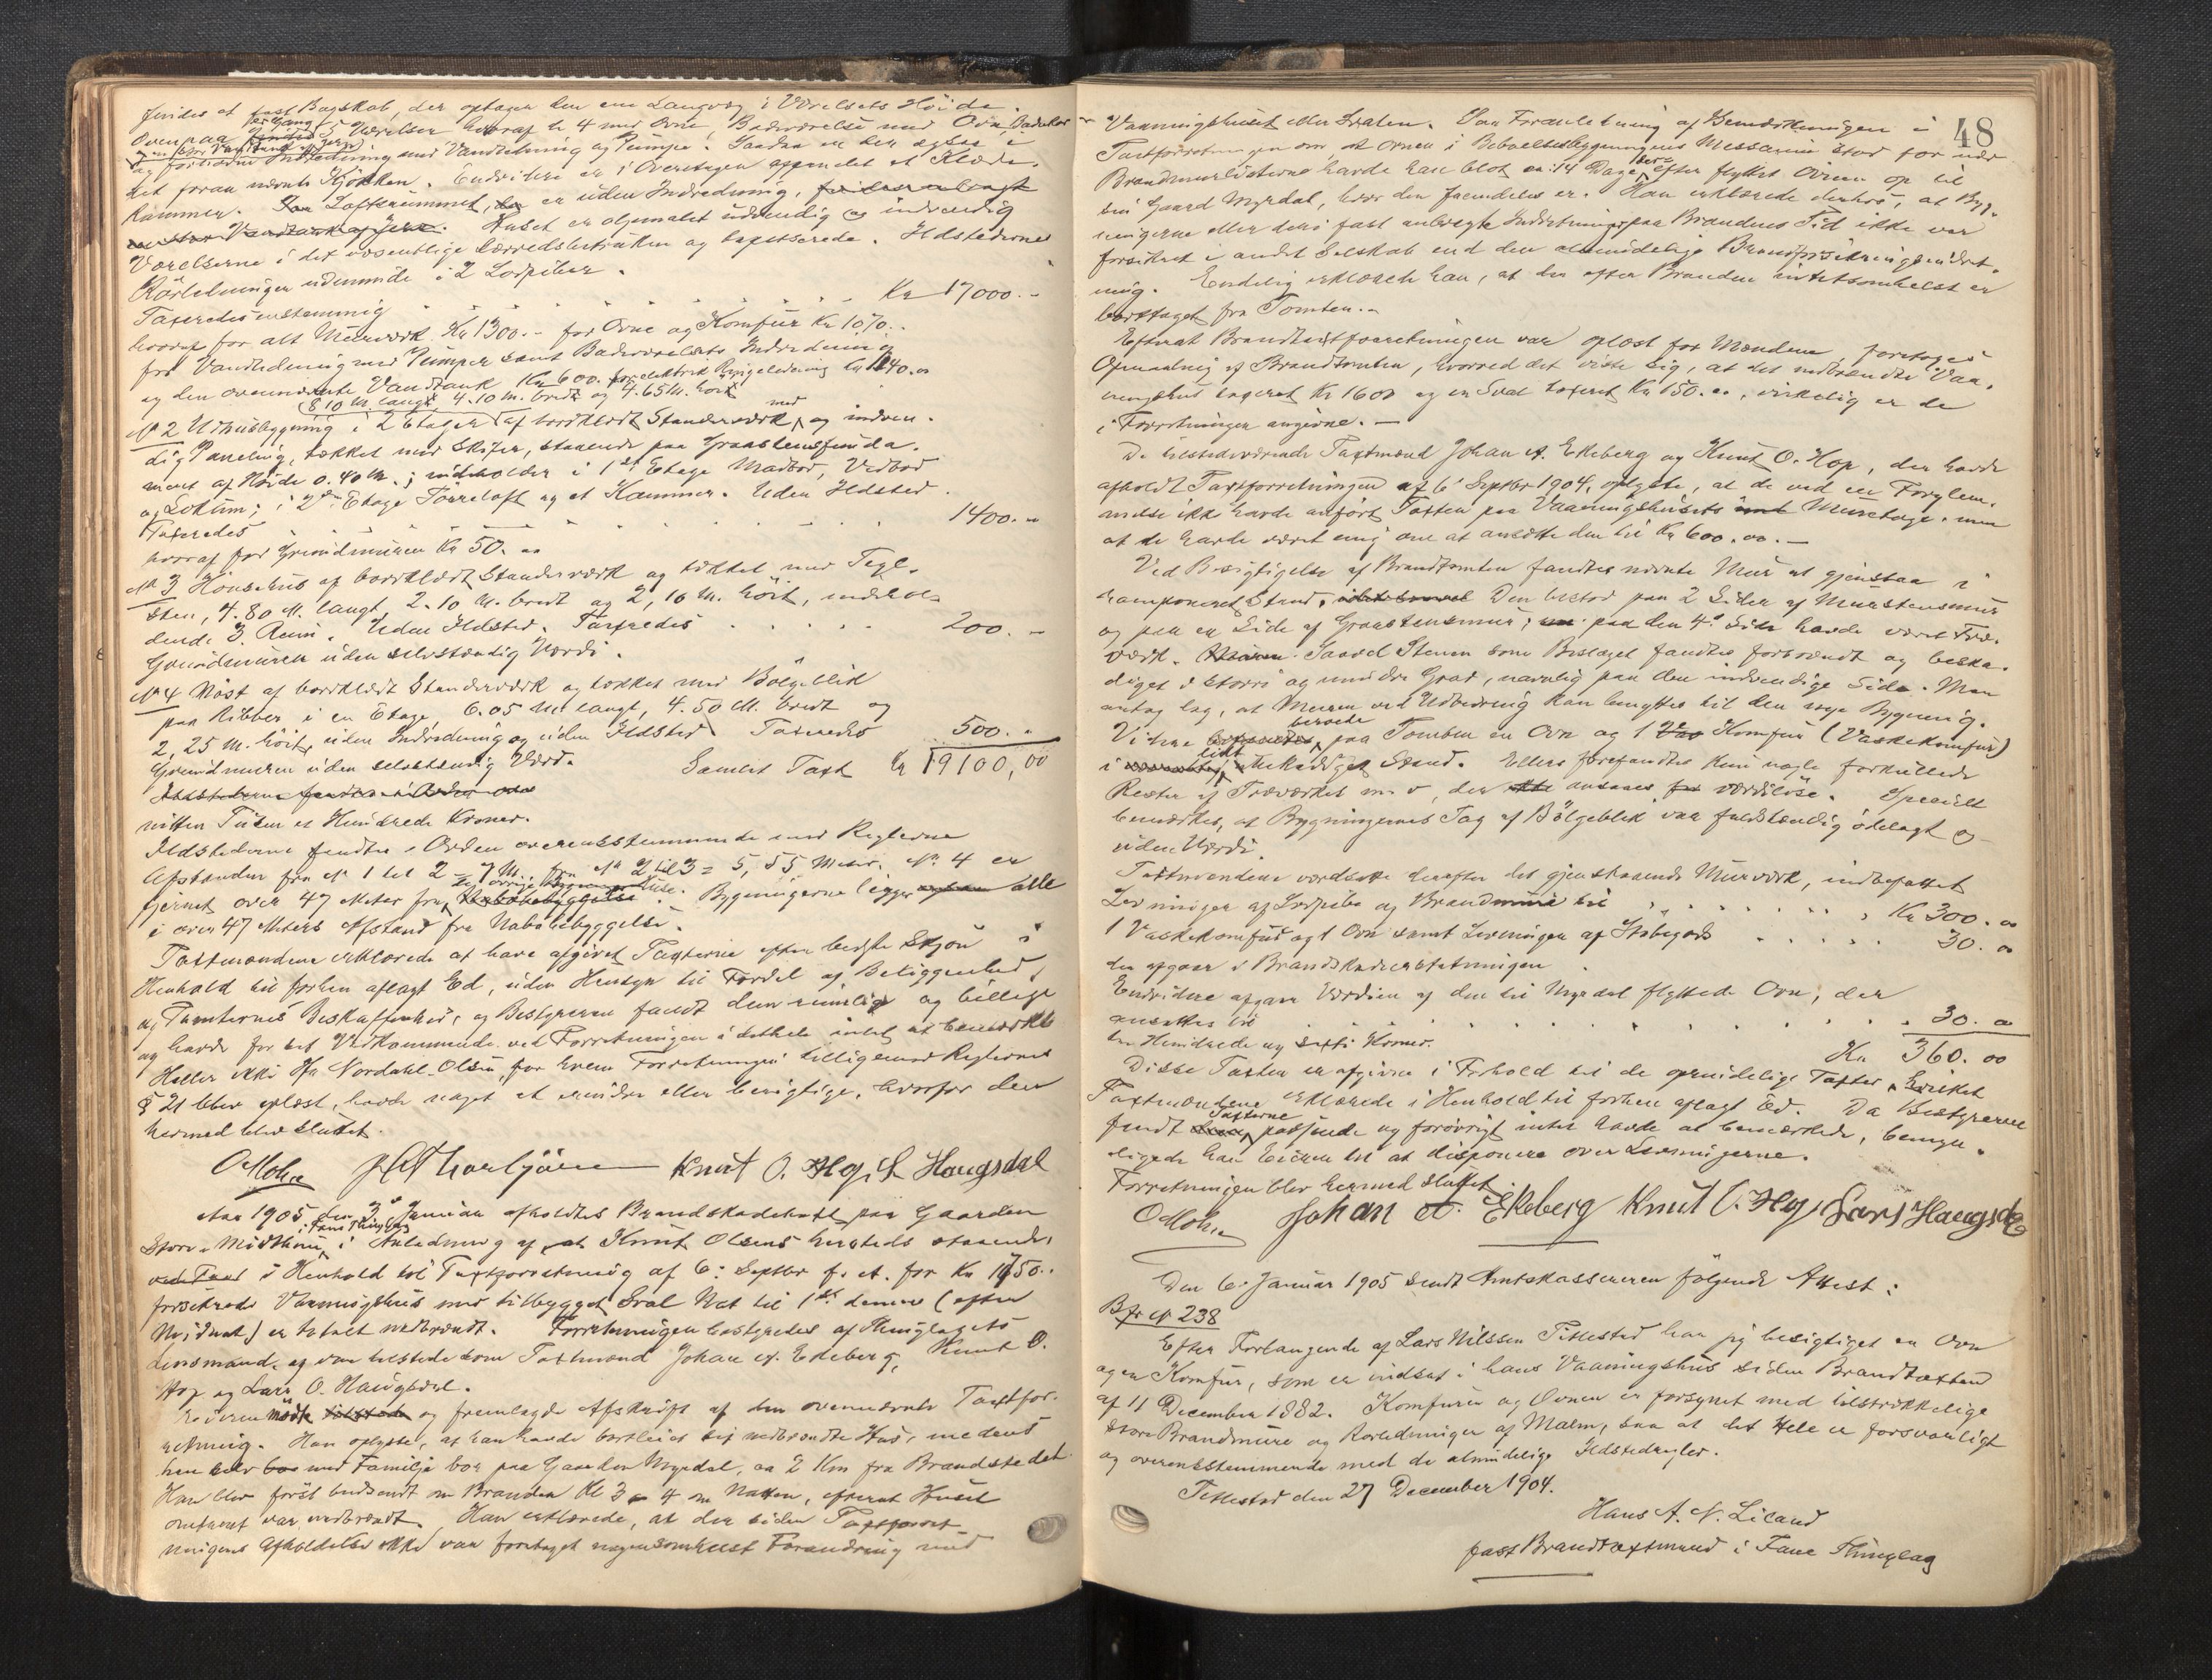 findes et fast Bagskab, der optager den ene Langvæg i Værelsets Höide.
Ovenpaa findes 5 Værelser hvoraf de 4 med Ovne, Badeværelse med Ovn, Badekar
og forskreven Indredning med Vandledning og Pumpe. Saadan er der ogsaa i
det foran nævnte Kjökken. Endvidere er i Overetagen afpandet et Klæde-
kammer. Loftsrummet, er uden Indredning,
Huset er oljemalet udvendig og indvendig
Værelserne i det væsentlige lærredsbetrukken og tapetserede. Ildstederne
Rörledninger udmunde i 2 Lodpiber.
Taxeredes enstemmig Kr 17000.-
hvoraf for alt Murværk Kr 1300.- for Ovne og Komfur Kr 1070.-
for Vandledning med Pumper samt Badeværelsets Indredning
og den ovennævnte Vandtank Kr 600. for elektrisk Ringeledning Kr 140.00
8.10 M. langt, 4.10 M. bredt og 4.65 M. höit
No 2 Udhusbygning i 2 Etager af bordklædt Standerværk med og indven-
dig Paneling, tækket med Skifer, staaende paa Graastensfunda-
ment af Höide 0.40 M.; indeholder i 1ste Etage Madbod, Vedbod
og Lokum; i 2den Etage Törreloft og et Kammer. Uden Ildsted.
Taxeredes 1400.-
hvoraf for Grundmuren Kr 50.00
No 3 Hönsehus af bordklædt Standerværk og tækket med Tegl-
sten, 4.80 M. langt, 2.10 M. bredt og 2,10 M. höit, indehol-
dende 3 Rum. Uden Ildsted. Taxeredes 200.-
Grundmuren uden selvstændig Værdi.
No 4 Nöst af bordklædt Standerværk og tækket med Bölgeblik
paa Ribber i en Etage, 6.05 M. langt, 4.50 M. bredt og
2,25 M. höit, uden Indredning og uden Ildsted Taxeredes 500.-
Grundmuren uden selvstændig Værd. Samlet Taxt Kr 19100,00
Ildstederne fandtes i Orden ove
nitten Tusen et Hundrede Kroner.
Ildstederne fandtes i Orden overensstemmende med Reglerne
Afstanden fra No 1 til 2 = 7 M., fra No 2 til 3 = 5,55 Meter. No 4 er
fjernet over 47 Meter fra de övrige Huse. Bygningerne ligger alle
i over 47 Meters Afstand fra Nabobebyggelse.
Taxtmændene erklærede at have afgivet Taxterne efter bedste Skjön i
Henhold til forhen aflagt Ed, uden Hensyn til Fordel af Beliggenhed
og Tomternes Beskaffenhed, og Bestyreren fandt dem rimelige og billige
og havde for sit Vedkommende ved Forretningen i det hele intet at bemærke
Heller ikke Hr Nordahl-Olsen, for hvem Forretningen tilligemed Reglernes
§ 21 blev oplæst, havde noget at erindre eller berigtige, hvorfor den
hermed blev sluttet.
OMohn Knut O. Hop L Haugsdal
Aar 1905 den 3die Januar afholdtes Brandskadetaxt paa Gaarden
Store-Midttun i Fane Thinglag i Anledning af at Knut Olsens hersteds staaende,
i Henhold til Taxtforretning af 6. Septbr f. A. for Kr 1750.-
forsikrede Vaaningshus med tilbygget Sval Nat til 1ste dennes (efter
Midnat) er totalt nedbrændt. Forretningen bestyredes af Thinglagets
Lensmand, og var tilstede som Taxtmænd Johan A. Ekeberg, Knut O.
Hop og Lars O. Haugsdal.
Eieren mödte og fremlagde Afskrift af den ovennævnte Taxtfor-
retning. Han oplyste, at han havde bortleiet det nedbrændte Hus, medens
han selv med Familje bor paa Gaarden Myrdal, ca 2 Km fra Brandstedet.
Han blev först budsendt om Branden Kl 3 a 4 om Natten, efterat Huset
omtrent var nedbrændt. Han erklærede, at der siden Taxtforret-
ningens Afholdelse ikke var foretaget nogensomhelst Forandring med
48
Vaaningshuset eller Svalen. Paa Foranledning af Bemærkningen i
Taxtforretningen om, at Ovnen i Beboelsesbygningens Messanin stod for nær
Brandmurlisterne havde han blot ca: 14 Dage derefter flyttet Ovnen op til
sin Gaard Myrdal, hvor den fremdeles er. Han erklærede derhos, at Byg-
ningerne eller deri fast anbragte Indretninger paa Brandens Tid ikke var
forsikret i andet Selskab end den almindelige Brandforsikringsindret-
ning. Endelig erklærede han, at der efter Branden intetsomhelst er
borttaget fra Tomten.-
Efterat Brandtaxtforretningen var oplæst for Mændene, foretoges
Opmaaling af Brandtomten, hvorved det viste sig, at det nedbrændte Vaa-
ningshus taxeret Kr 1600 og en Sval taxeret Kr 150.00, virkelig er de
i Forretningen angivne.-
De tilstedeværende Taxtmænd Johan A. Ekeberg og Knut O. Hop, der havde
afholdt Taxtforretningen af 6' Septbr 1904, oplyste, at de ved en Forglem-
melse ikke havde anfört Taxten paa Vaaningshusets Muretage, men
at de havde været enig om at ansætte den til Kr 600.00.-
Ved Besigtigelse af Brandtomten fandtes nævnte Mur at gjenstaa i
ramponeret Stand. Den bestod paa 2 Sider af Murstensmur
og paa en Side af Graastensmur; paa den 4de Side havde været Træ-
værk. Saavel Stenen som Beslaget fandtes forbrændt og beska-
diget i större og mindre Grad, navnlig paa den indvendige Side. Man
antog dog, at Muren ved Udbedring kan benyttes til den nye Bygning.
Videre beroede paa Tomten en Ovn og 1 Komfur (Vaskekomfur)
i lidt beskadiget Stand. Ellers forefandtes kun nogle forkullede
Rester af Træværket m. v., der ansaaes værdilöse. Specielt
bemærkes, at Bygningernes Tag af Bölgeblik var fuldstændig ödelagt og
uden Værdi.
Taxtmændene værdsatte derefter det gjenstaaende Murværk, indbefattet
Levninger af Lodpibe og Brandmure til Kr 300.00
1 Vaskekomfur og 1 Ovn samt Levninger af Stöbegods 30.00
der afgaar i Brandskadeerstatningen
Endvidere afgaar Værdien af den til Myrdal flyttede Ovn, der
ansættes til 30.00
tre Hundrede og sexti Kroner. Kr 360.00
Disse Taxter er afgivne i Forhold til de oprindelige Taxter, hvilket
Taxtmændene erklærede i Henhold til forhen aflagt Ed. Da Bestyreren
fandt Taxterne passende og forövrigt intet havde at bemærke, bemyn-
digede han Eieren til at disponere over Levningerne.
Forretningen blev hermed sluttet.
OMohn Johan A. Ekeberg Knut O. Hop Lars Haugsdal
Den 6. Januar 1905 sendt Amtskassereren fölgende Attest:
Bfr No 238
Efter Forlangende af Lars Nilssen Titlestad har jeg besigtiget en Ovn
og en Komfur, som er indsat i hans Vaaningshus siden Brandtaxten
af 11 December 1882. Komfuren og Ovnen er forsynet med tilstrækkelige
store Brandmure og Rörledninger af Malm, saa at det Hele er forsvarligt
og overensstemmende med de almindelige Ildstedregler.
Titlestad den 27 December 1904.
Hans A. N. Licaud
fast Brandtaxtmand i Fane Thinglag